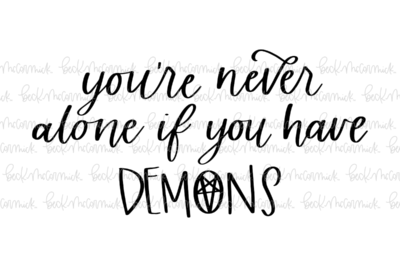 you're never
alone if you have
DEMONS